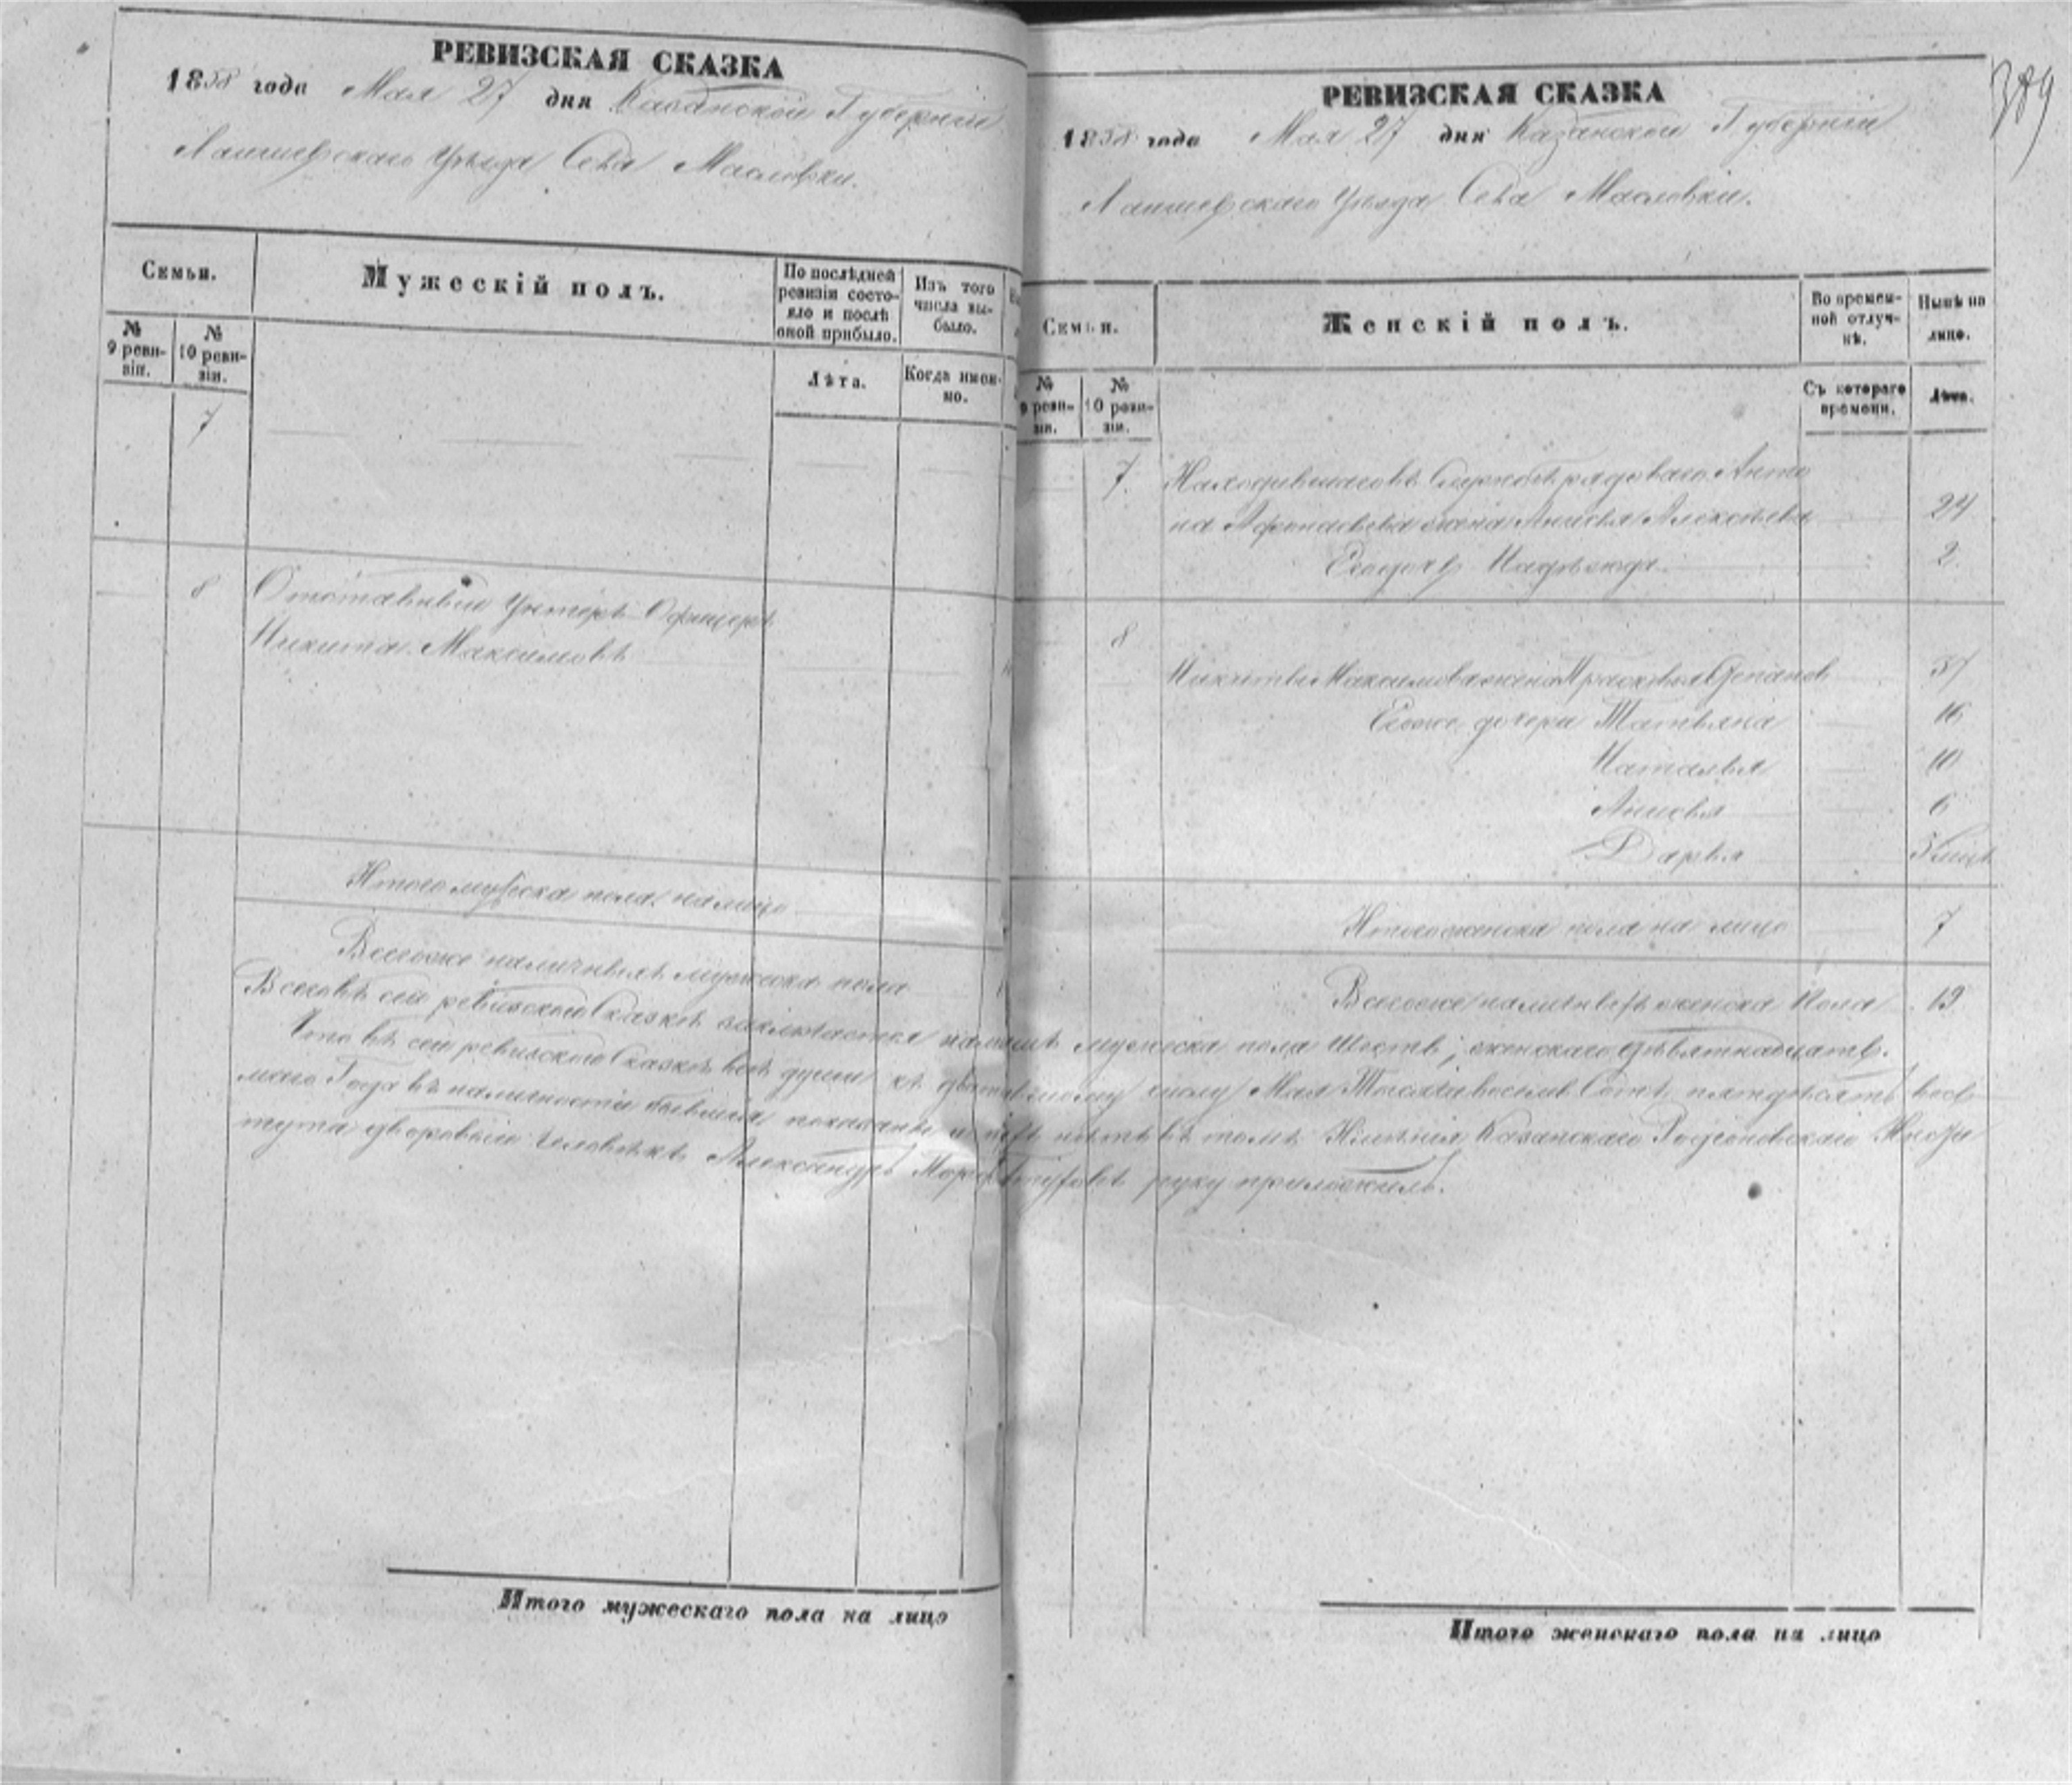 РЕВИЗСКАЯ СКАЗКА
1858 года Мая 27 дня Казанской Губернiи
Лаишевскаго Уѣзда Села Масловки.
Семьи.
Мужескiй полъ.
По послѣдней ревизiи состояло и послѣ оной прибыло.
Изъ того числа выбыло.
№ 9 ревизiи.
№ 10 ревизiи.
Лѣта.
Когда именно.
7
8 Отставный Унтеръ Офицеръ
Никита Максимовъ
Итого мужеска пола на лицо
Всегоже наличныхъ мужеска пола
РЕВИЗСКАЯ СКАЗКА
389
1858 года Мая 27 дня Казанской Губернiи
Лаишевскаго Уѣзда Села Масловки.
Семьи.
Женскiй полъ.
Во временной отлучкѣ.
Нынѣ на лицо.
№ 9 ревизiи.
№ 10 ревизiи.
Съ котораго времени.
Лѣта.
7. Находившагось въ Службѣ рядоваго Анто
на Афонасьева жена Анисья Алексѣева 24
Егодочь Надежда 2
8
Никиты Максимова жена Прасковья Степанов 37
Егоже дочери Татьяна 16
Наталья 10
Анисья 6
Дарья
Итого женска пола на лицо 7
Всегоже наличныхъ женска пола 19
Всего въ сей ревизской Сказкѣ заключается мужеска пола Шесть, женскаго девятнадцать.
Что въ сей ревизской Сказкѣ всѣ души къ числу Мая Тысяча восемь Сотъ пятдѣсятъ вось
маго Года въ наличности бывшiя показаны и нѣтъ въ томъ Имѣнiя Казанскаго Родiоновскаго Инсти
тута дворовый человѣкъ Александръ руку приложилъ.
Итого мужескаго пола на лицо
Итого женскаго пола на лицо